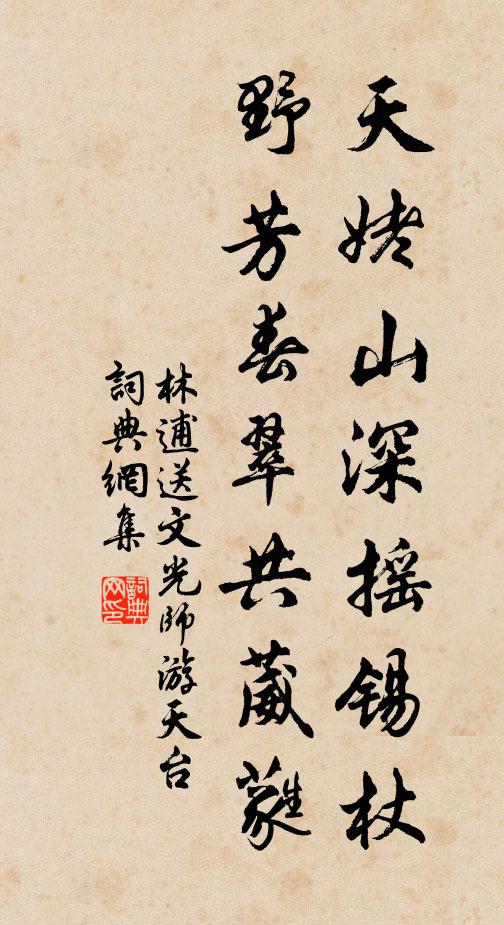 天姥山深搖錫杖
野芳春翠共葳蕤
林逋送文光師游天台
詞典網集
詞典网印